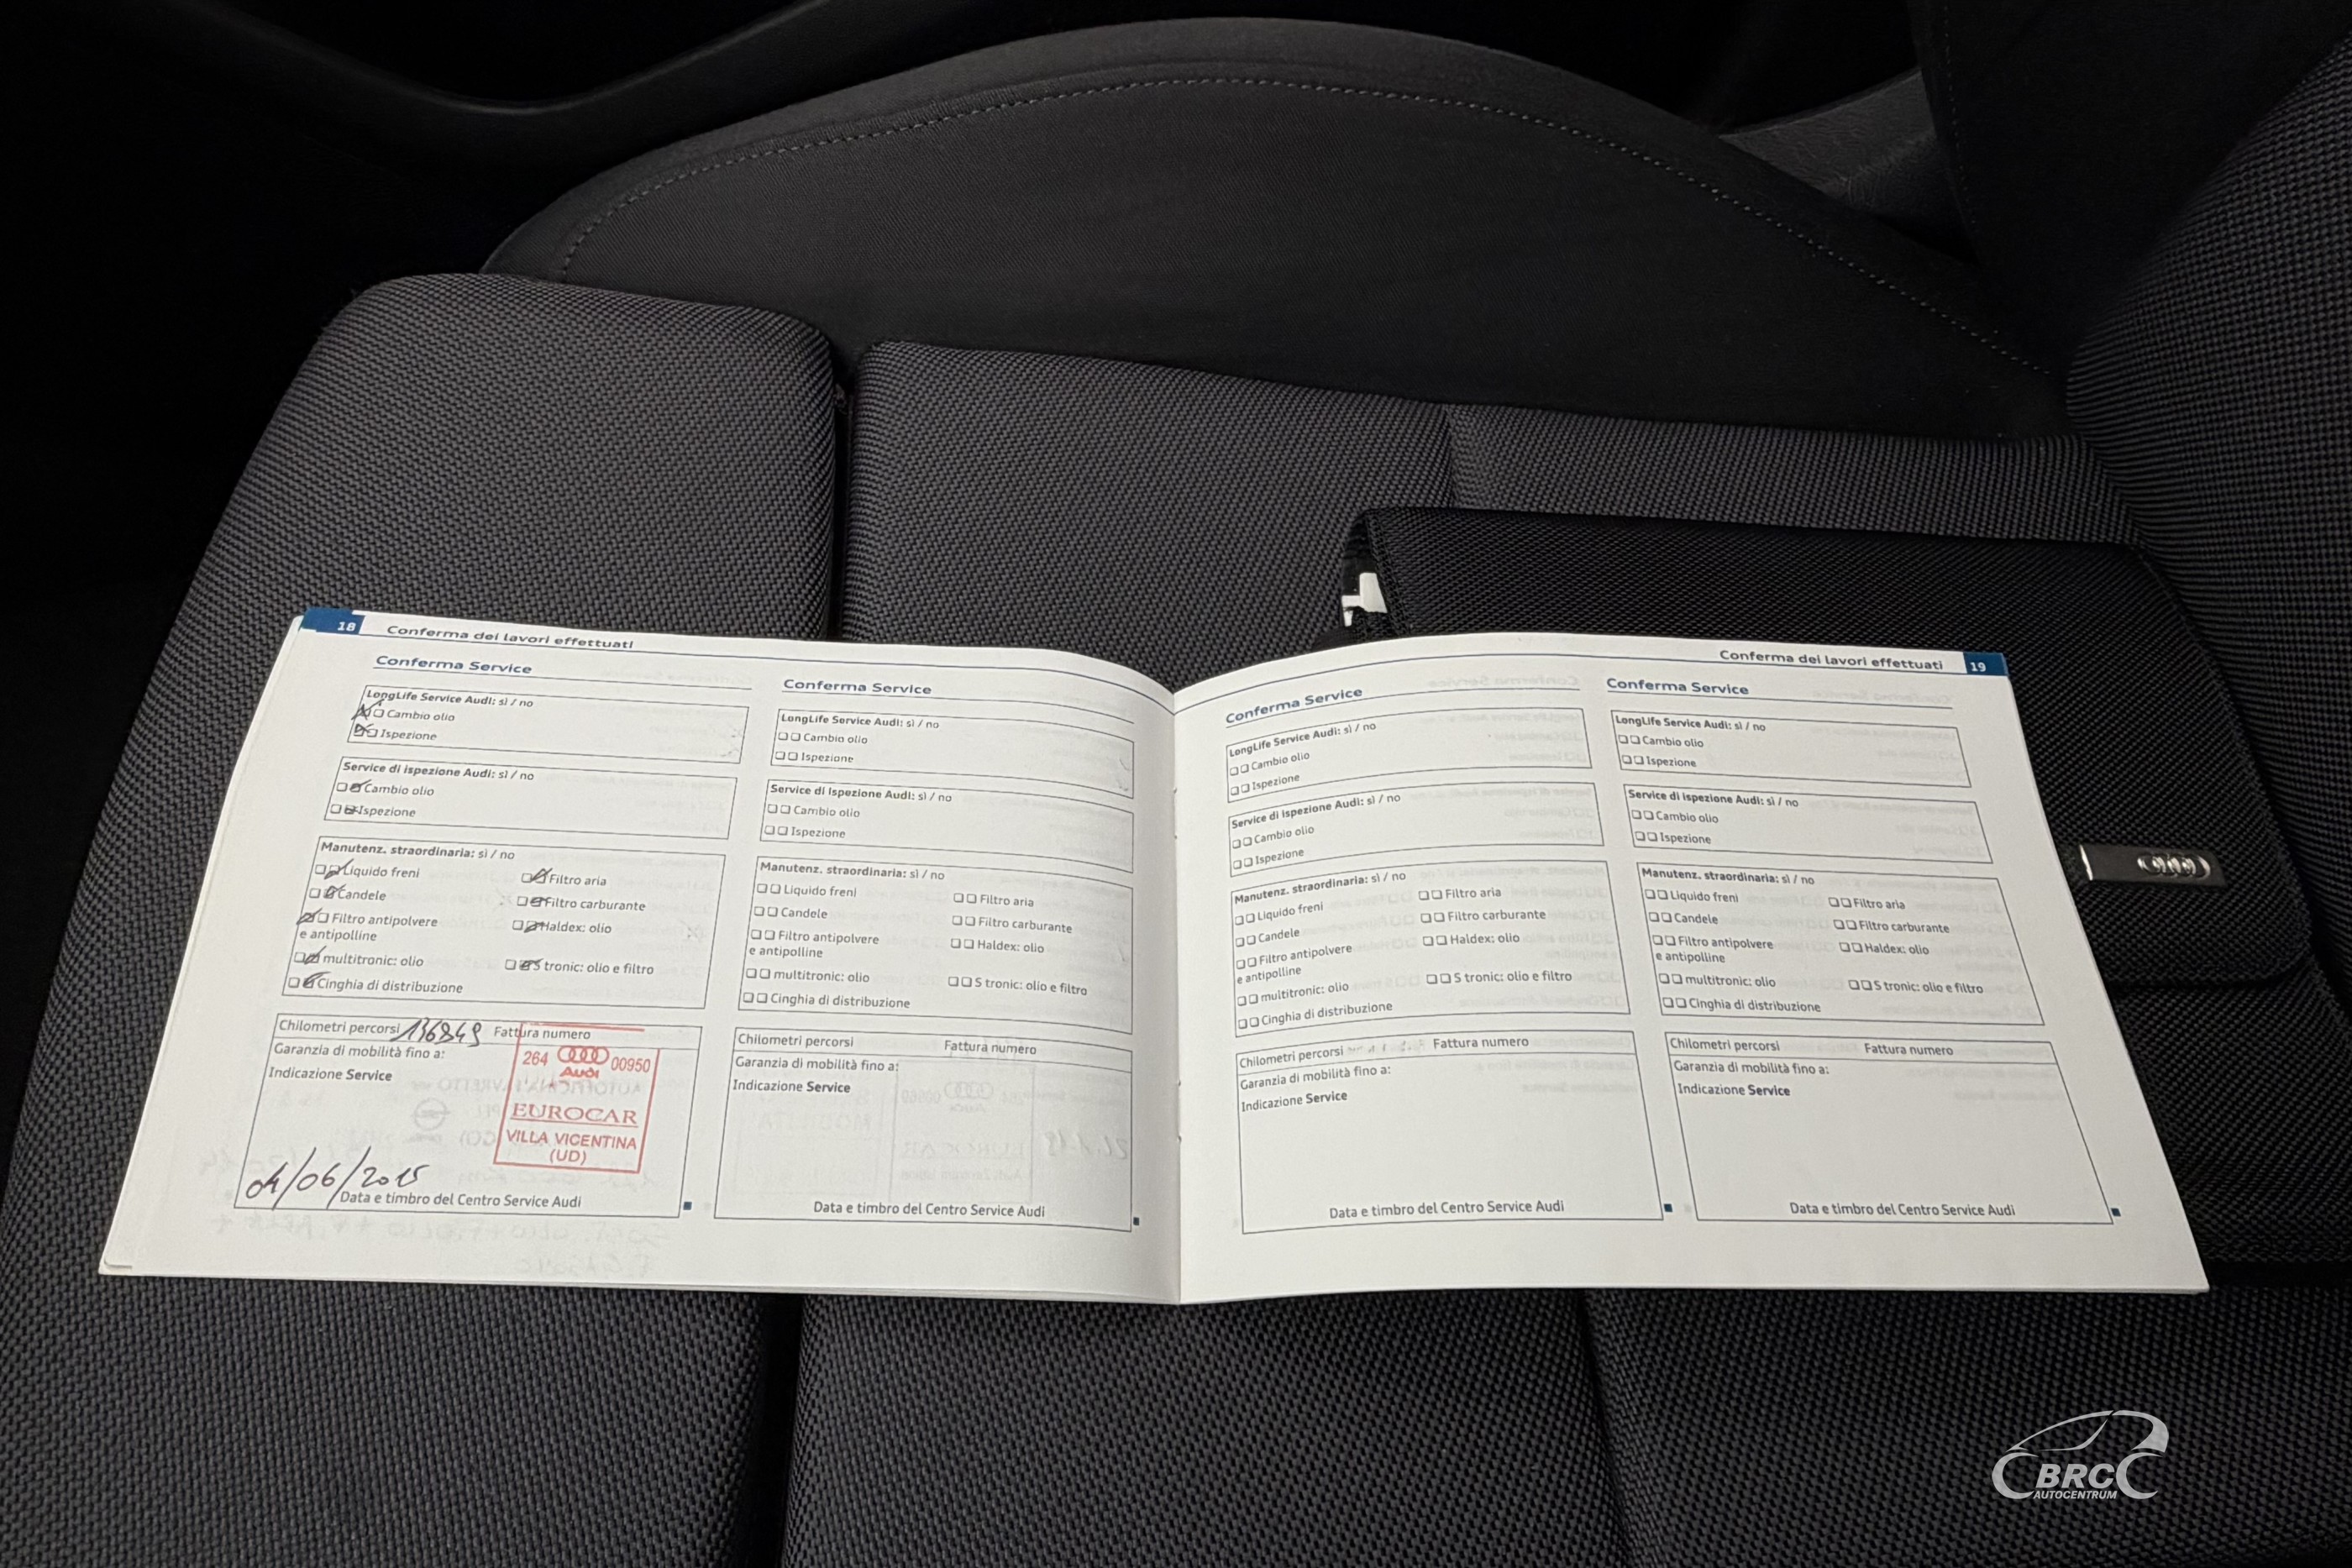 18 Conferma dei lavori effettuati
Conferma Service
LongLife Service Audi: sì / no
Cambio olio
Ispezione
Service di ispezione Audi: sì / no
Cambio olio
Ispezione
Manutenz. straordinaria: sì / no
Liquido freni Filtro aria
Candele Filtro carburante
Filtro antipolvere Haldex: olio
e antipolline
multitronic: olio S tronic: olio e filtro
Cinghia di distribuzione
Chilometri percorsi 136849 Fattura numero
Garanzia di mobilità fino a:
Indicazione Service
264 Audi 00950
EUROCAR
VILLA VICENTINA
(UD)
04/06/2015
Data e timbro del Centro Service Audi
Conferma Service
LongLife Service Audi: sì / no
Cambio olio
Ispezione
Service di Ispezione Audi: sì / no
Cambio olio
Ispezione
Manutenz. straordinaria: sì / no
Liquido freni Filtro aria
Candele Filtro carburante
Filtro antipolvere Haldex: olio
e antipolline
multitronic: olio S tronic: olio e filtro
Cinghia di distribuzione
Chilometri percorsi Fattura numero
Garanzia di mobilità fino a:
Indicazione Service
Data e timbro del Centro Service Audi
Conferma dei lavori effettuati 19
Conferma Service
LongLife Service Audi: sì / no
Cambio olio
Ispezione
Service di ispezione Audi: sì / no
Cambio olio
Ispezione
Manutenz. straordinaria: sì / no
Liquido freni Filtro aria
Candele Filtro carburante
Filtro antipolvere Haldex: olio
e antipolline
multitronic: olio S tronic: olio e filtro
Cinghia di distribuzione
Chilometri percorsi Fattura numero
Garanzia di mobilità fino a:
Indicazione Service
Data e timbro del Centro Service Audi
Conferma Service
LongLife Service Audi: sì / no
Cambio olio
Ispezione
Service di ispezione Audi: sì / no
Cambio olio
Ispezione
Manutenz. straordinaria: sì / no
Liquido freni Filtro aria
Candele Filtro carburante
Filtro antipolvere Haldex: olio
e antipolline
multitronic: olio S tronic: olio e filtro
Cinghia di distribuzione
Chilometri percorsi Fattura numero
Garanzia di mobilità fino a:
Indicazione Service
Data e timbro del Centro Service Audi
BRC
AUTOCENTRUM